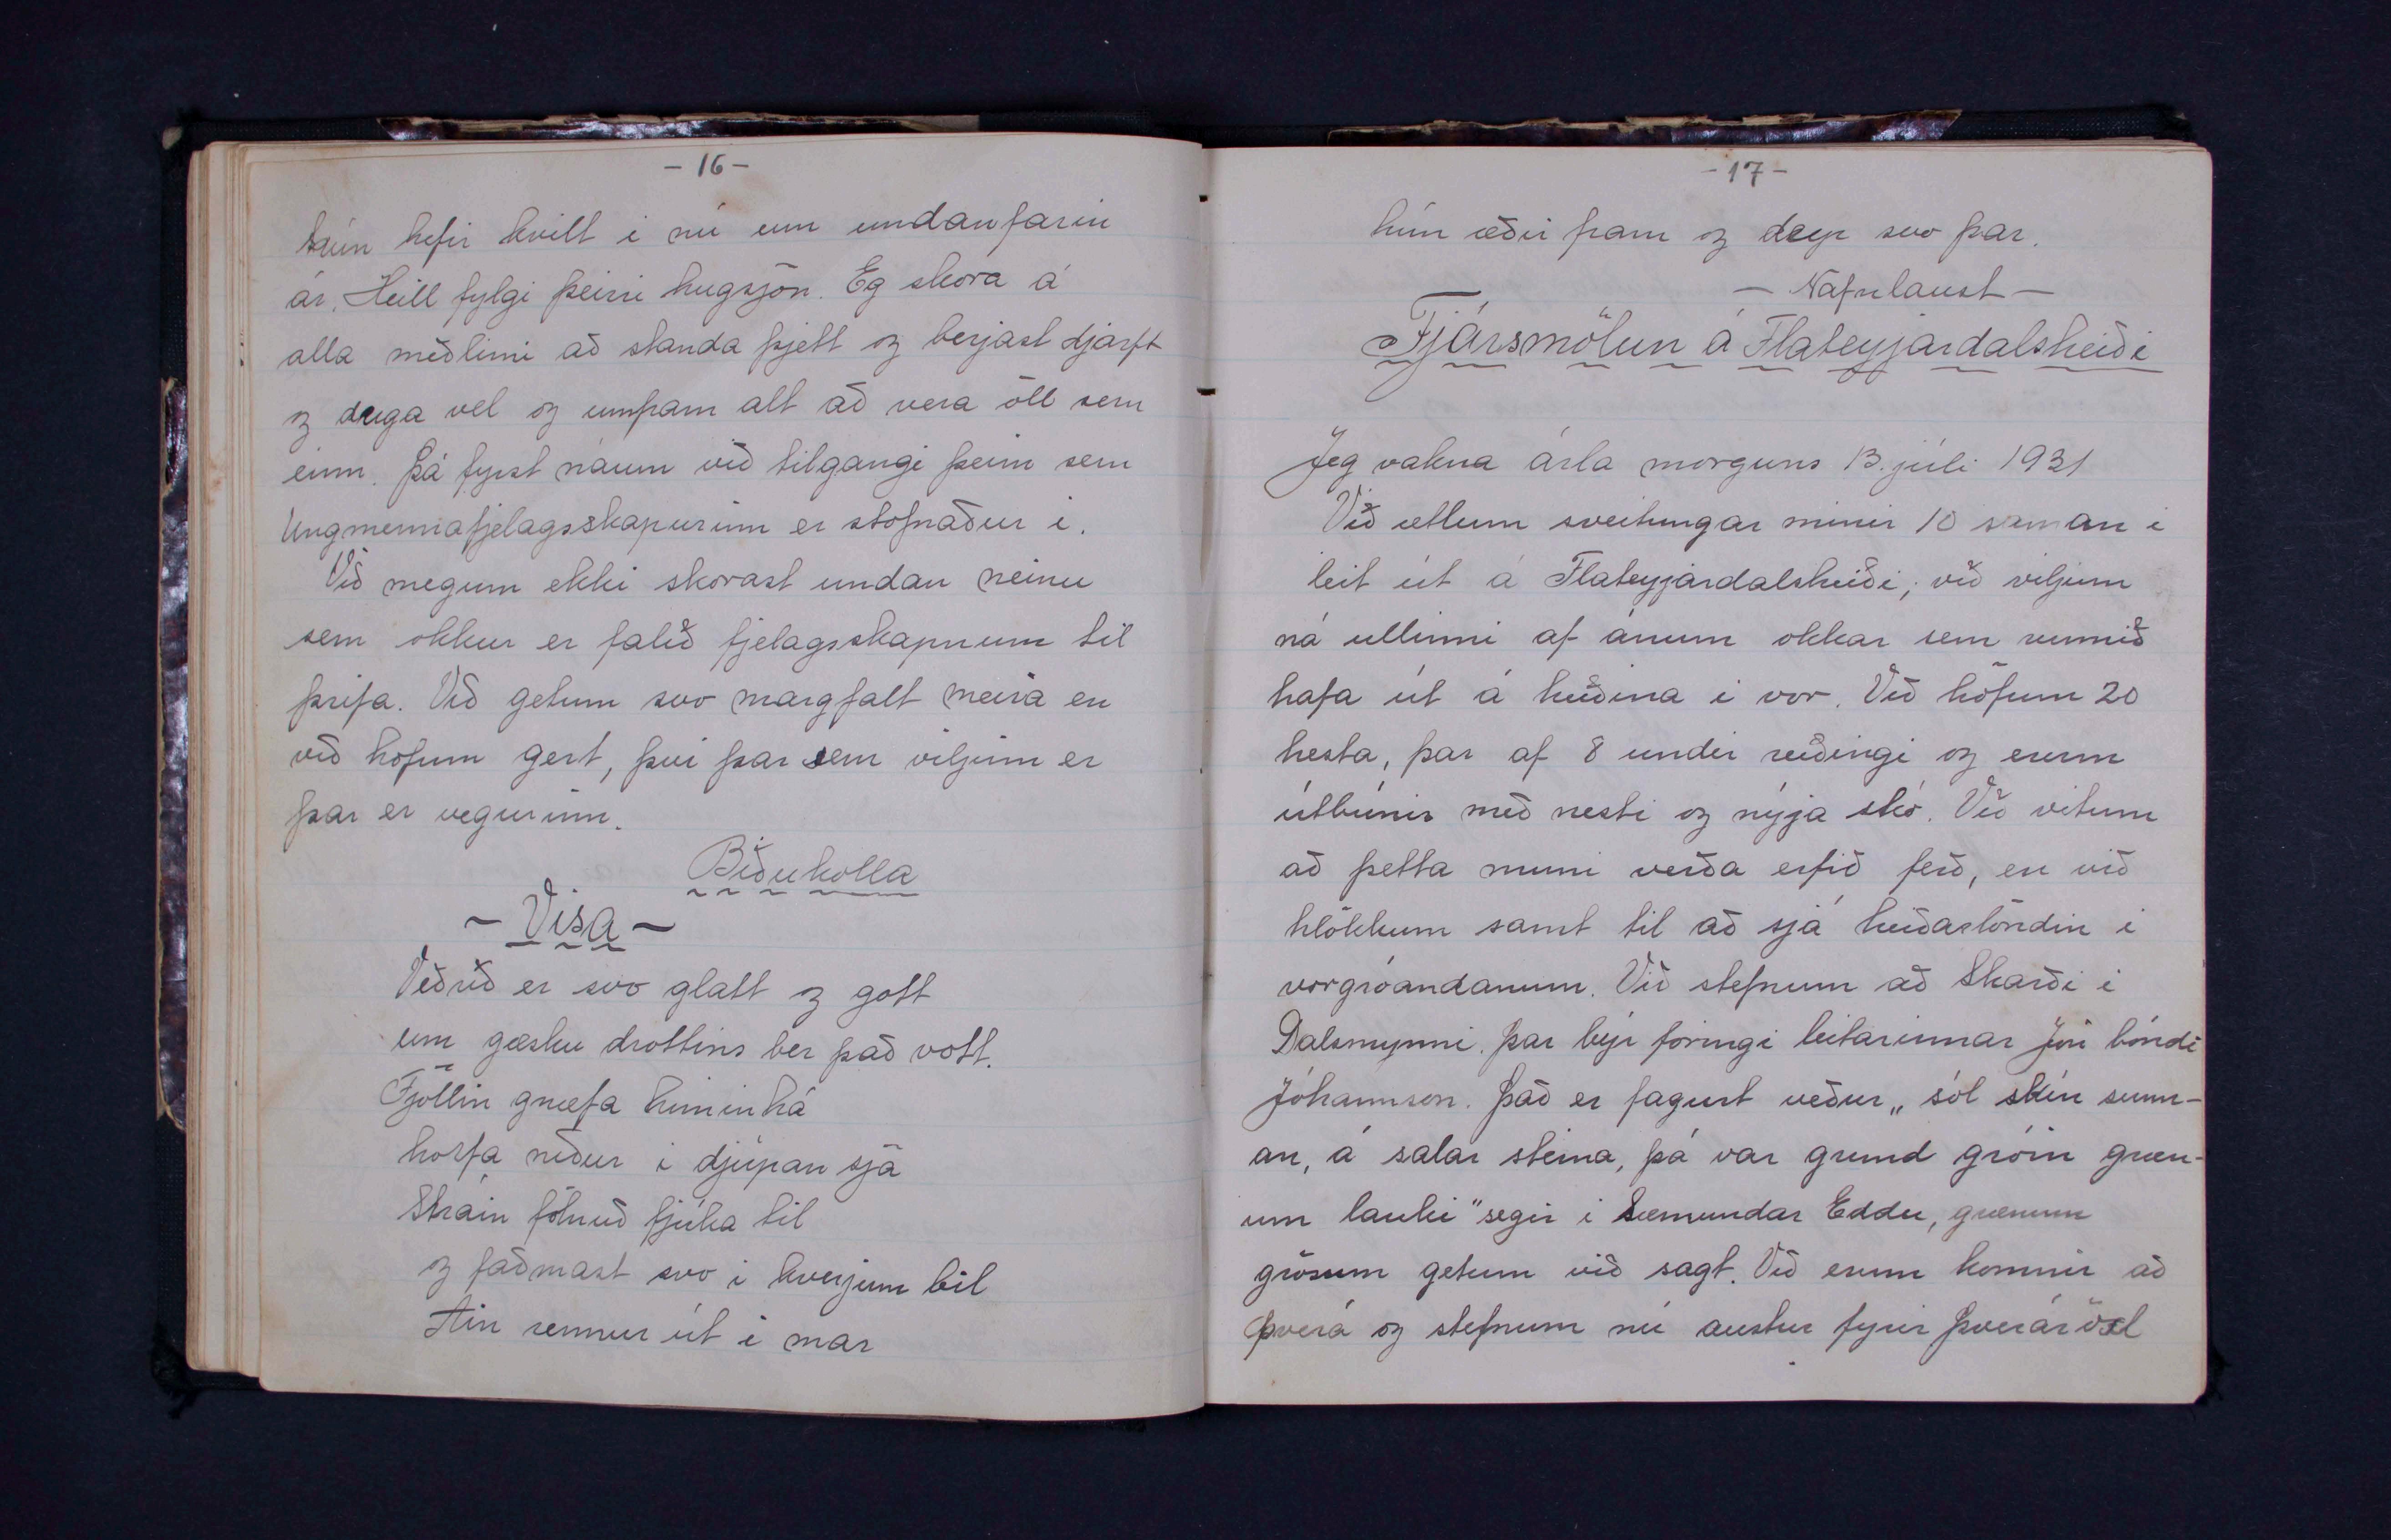 - 16 -
hún hefir hvílt í nú um undanfarin
ár. Heill fylgi þeirri hugsjón. Eg skora á
alla meðlimi að standa þjett og berjast djarft
og duga vel og umfram alt að vera öll sem
einn. Þá fyrst náum við tilgangi þeim sem
Ungmennafjelagsskapurinn er stofnaður í.
Við megum ekki skorast undan neinu
sem okkur er falið fjelagsskapnum til
þrifa. Við getum svo margfalt meira en
við höfum gert, því þar sem viljinn er
þar er vegurinn.
Biðukolla
- Vísa -
Veðrið er svo glatt og gott
um gæsku drottins ber það vott.
Fjöllin gnæfa himinhá
horfa niður í djúpan sjá
Stráin fölnuð fjúka til
og faðmast svo í hverjum bil
Áin rennur út í mar
- 17 -
hún æðir fram og deyr svo þar.
- Nafnlaust -
Fjársmölun á Flateyjardalsheiði
Jeg vakna árla morguns 13. júli 1931
Við ætlum sveitungar mínir 10 saman í
leit út á Flateyjardalsheiði; við viljum
ná ullinni af ánum okkar sem runnið
hafa út á heiðina í vor. Við höfum 20
hesta, þar af 8 undir reiðingi og erum
útbúnir með nesti og nýja skó. Við vitum
að þetta muni verða erfið ferð, en við
hlökkum samt til að sjá heiðarlöndin í
vorgróandanum. Við stefnum að Skarði í
Dalsmynni. Þar býr foringi leitarinnar Jón bóndi
Jóhannson. Það er fagurt veður „ sól skín sunn-
an, á salar steina, þá var grund gróin græn-
um lauki" segir í Sæmundar Eddu, grænum
grösum getum við sagt. Við erum komnir að
Þverá og stefnum nú austur fyrir Þveráröxl